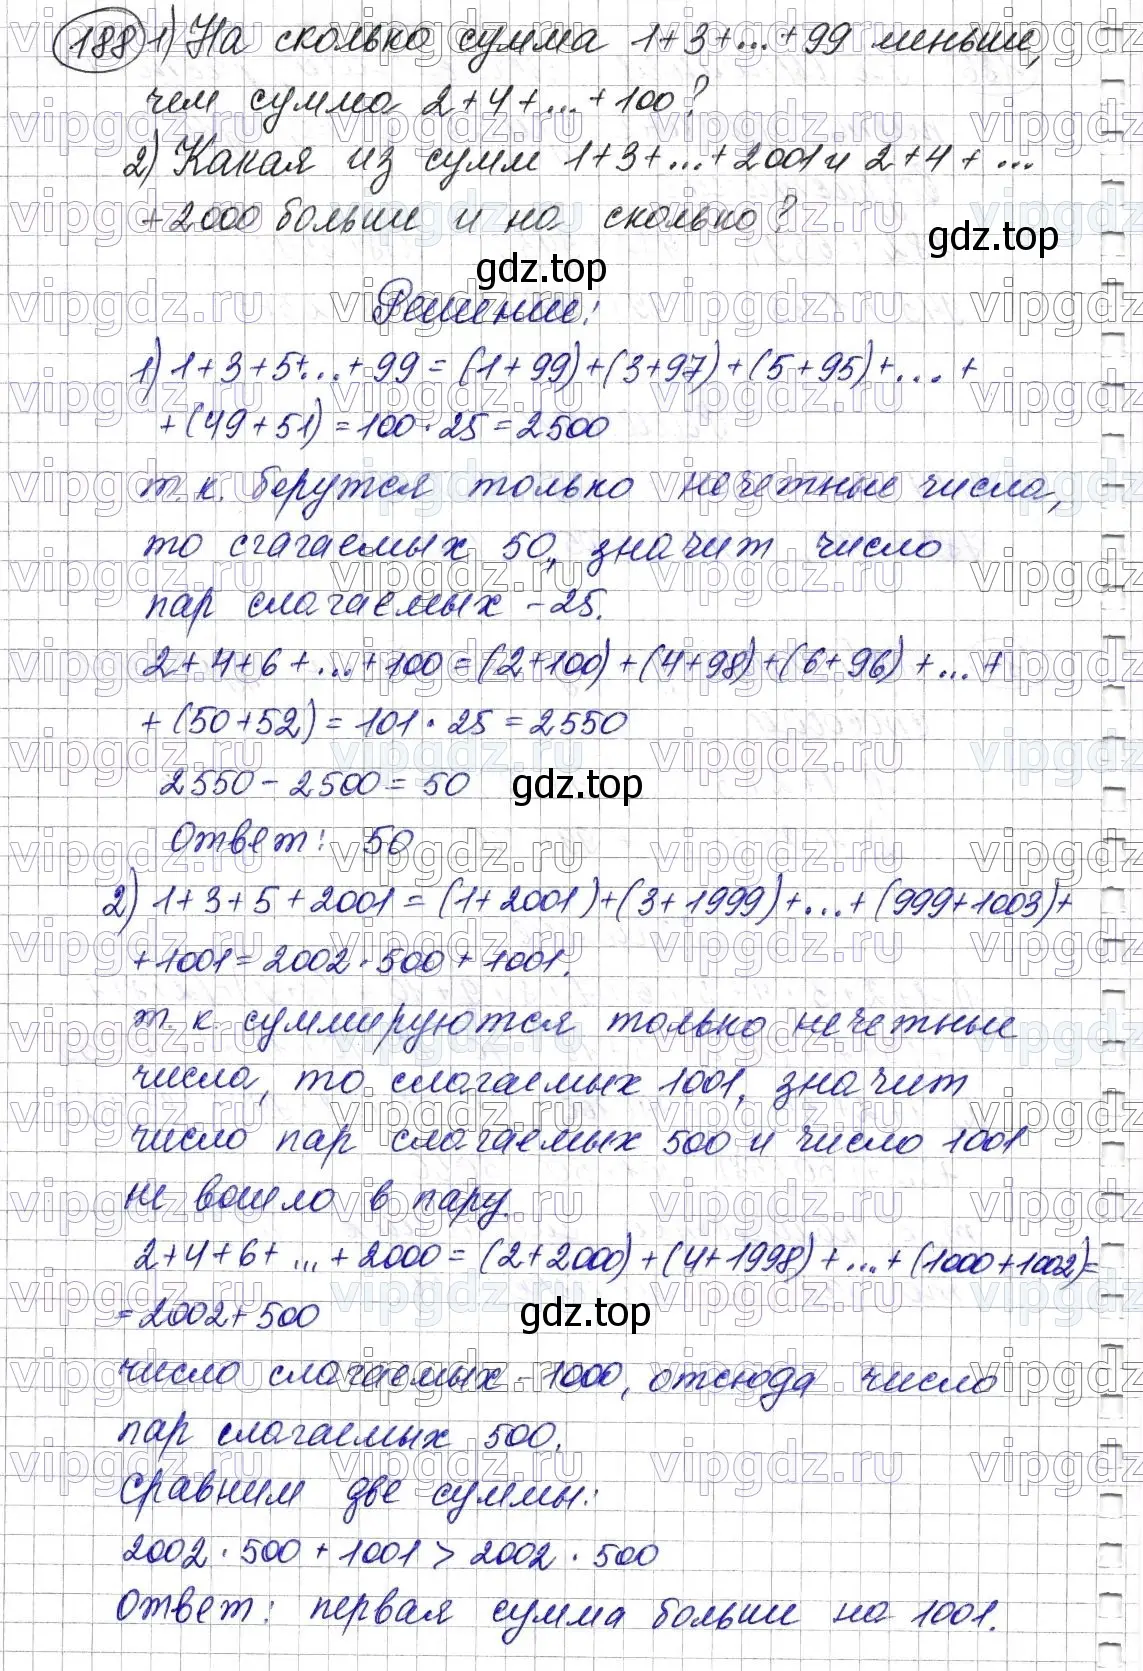 188 1) На сколько сумма 1+3+...+99 меньше,
чем сумма 2+4+...+100?
2) Какая из сумм 1+3+...+2001 и 2+4+...
+2000 больше и на сколько?
gdz.top
gdz.top
Решение:
1) 1+3+5+...+99=(1+99)+(3+97)+(5+95)+...+
+(49+51)=100·25=2500
т.к. берутся только нечетные числа,
то сгагаемых 50, значит число
пар слагаемых -25.
2+4+6+...+100=(2+100)+(4+98)+(6+96)+...+
+(50+52)=101·25=2550
2550-2500=50
gdz.top
Ответ: 50
2) 1+3+5+2001=(1+2001)+(3+1999)+...+(999+1003)+
+1001=2002·500+1001.
т.к. суммируются только нечетные
числа, то слагаемых 1001, значит
число пар слагаемых 500 и число 1001
не вошло в пару.
2+4+6+...+2000=(2+2000)+(4+1998)+...+(1000+1002)=
=2002+500
gdz.top
число слагаемых -1000, отсюда число
пар слагаемых 500.
Сравним две суммы:
2002·500+1001>2002·500
Ответ: первая сумма больше на 1001.